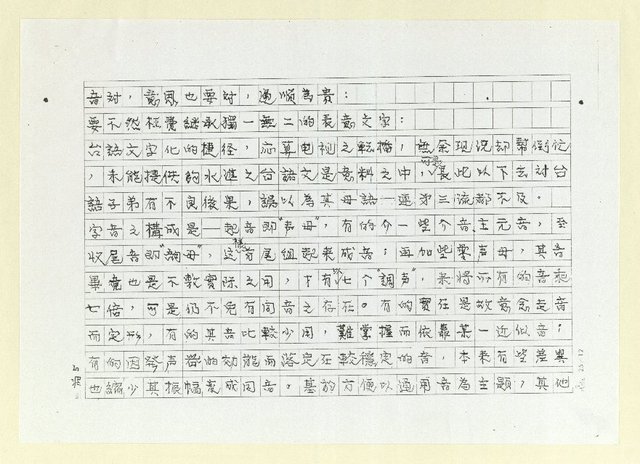 音對，意思也要對，通順為貴：
要不然枉費繼承獨一無二的表意文字：
台語文字化的捷徑，應算电視之転播，無奈現況却幫倒忙
，未能提供夠水準之台語文是意料之中，可是長此以下去对台
語子弟有不良後果，誤以為其母語一連第三流都不及。
字音之構成是一起音即"声母"，有的介一些介音主元音，至
收尾音即"韻母"，這樣首尾組起來成音；再加些 声母，其音
畢竟也是不敷實際之用，下有以七个"調声"，来將所有的音乘
七倍，可是仍不免有同音之存在。有的實在是故意念走音
而定形，有的其音比較少用，難掌握而依靠某一近似音；
有的因發声器的効能而落定在較穩定的音，本来有些差異
也縮少其振幅変成同音。基於方便以通用音為主題，其他